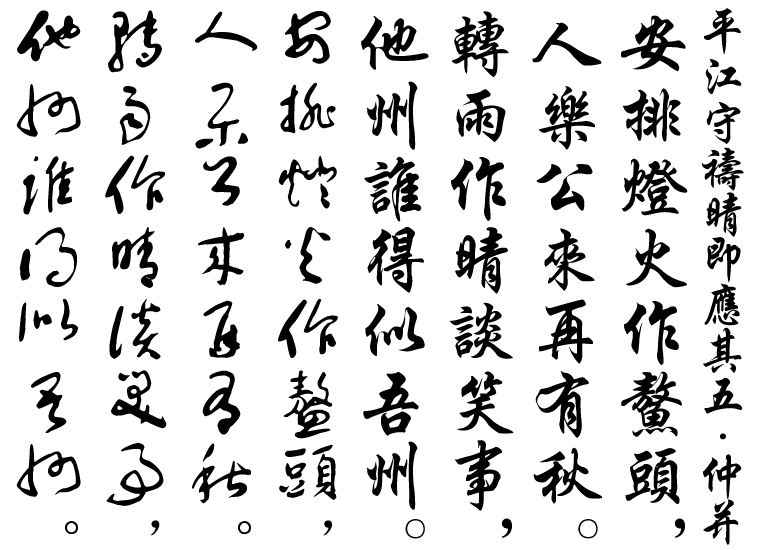 平江守禱晴即應其五·仲并
安排燈火作鰲頭，
人樂公來再有秋。
轉雨作晴談笑事，
他州誰得似吾州。
安排燈火作鰲頭，
人樂公來再有秋。
轉雨作晴談笑事，
他州誰得似吾州。